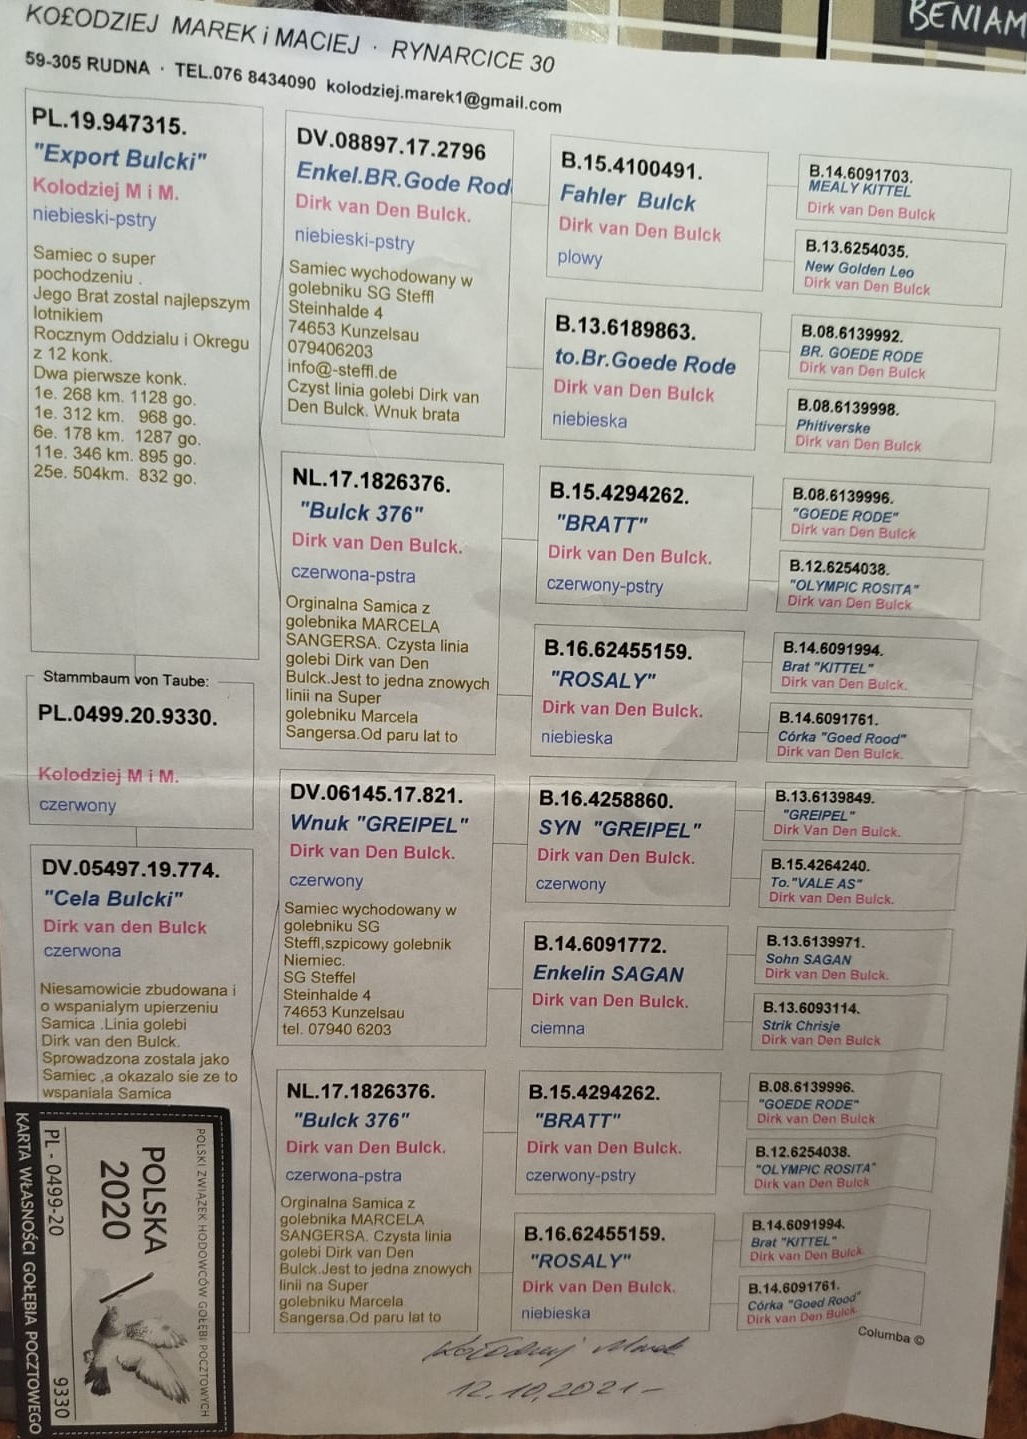 BENIAM
KOŁODZIEJ MAREK i MACIEJ · RYNARCICE 30
59-305 RUDNA · TEL.076 8434090 kolodziej.marek1@gmail.com
PL.19.947315.
"Export Bulcki"
Kolodziej M i M.
niebieski-pstry
Samiec o super
pochodzeniu .
Jego Brat zostal najlepszym
lotnikiem
Rocznym Oddzialu i Okregu
z 12 konk.
Dwa pierwsze konk.
1e. 268 km. 1128 go.
1e. 312 km. 968 go.
6e. 178 km. 1287 go.
11e. 346 km. 895 go.
25e. 504km. 832 go.
Stammbaum von Taube:
PL.0499.20.9330.
Kolodziej M i M.
czerwony
DV.05497.19.774.
"Cela Bulcki"
Dirk van den Bulck
czerwona
Niesamowicie zbudowana i
o wspanialym upierzeniu
Samica .Linia golebi
Dirk van den Bulck.
Sprowadzona zostala jako
Samiec ,a okazalo sie ze to
wspaniala Samica
DV.08897.17.2796
Enkel.BR.Gode Rod
Dirk van Den Bulck.
niebieski-pstry
Samiec wychodowany w
golebniku SG Steffl
Steinhalde 4
74653 Kunzelsau
079406203
info@-steffl.de
Czyst linia golebi Dirk van
Den Bulck. Wnuk brata
NL.17.1826376.
"Bulck 376"
Dirk van Den Bulck.
czerwona-pstra
Orginalna Samica z
golebnika MARCELA
SANGERSA. Czysta linia
golebi Dirk van Den
Bulck.Jest to jedna znowych
linii na Super
golebniku Marcela
Sangersa.Od paru lat to
DV.06145.17.821.
Wnuk "GREIPEL"
Dirk van Den Bulck.
czerwony
Samiec wychodowany w
golebniku SG
Steffl,szpicowy golebnik
Niemiec.
SG Steffel
Steinhalde 4
74653 Kunzelsau
tel. 07940 6203
NL.17.1826376.
"Bulck 376"
Dirk van Den Bulck.
czerwona-pstra
Orginalna Samica z
golebnika MARCELA
SANGERSA. Czysta linia
golebi Dirk van Den
Bulck.Jest to jedna znowych
linii na Super
golebniku Marcela
Sangersa.Od paru lat to
B.15.4100491.
Fahler Bulck
Dirk van Den Bulck
plowy
B.13.6189863.
to.Br.Goede Rode
Dirk van Den Bulck
niebieska
B.15.4294262.
"BRATT"
Dirk van Den Bulck.
czerwony-pstry
B.16.62455159.
"ROSALY"
Dirk van Den Bulck.
niebieska
B.16.4258860.
SYN "GREIPEL"
Dirk van Den Bulck.
czerwony
B.14.6091772.
Enkelin SAGAN
Dirk van Den Bulck.
ciemna
B.15.4294262.
"BRATT"
Dirk van Den Bulck.
czerwony-pstry
B.16.62455159.
"ROSALY"
Dirk van Den Bulck.
niebieska
B.14.6091703.
MEALY KITTEL
Dirk van Den Bulck
B.13.6254035.
New Golden Leo
Dirk van Den Bulck
B.08.6139992.
BR. GOEDE RODE
Dirk van Den Bulck
B.08.6139998.
Phitiverske
Dirk van Den Bulck
B.08.6139996.
"GOEDE RODE"
Dirk van Den Bulck
B.12.6254038.
"OLYMPIC ROSITA"
Dirk van Den Bulck
B.14.6091994.
Brat "KITTEL"
Dirk van Den Bulck.
B.14.6091761.
Córka "Goed Rood"
Dirk van Den Bulck.
B.13.6139849.
"GREIPEL"
Dirk Van Den Bulck.
B.15.4264240.
To."VALE AS"
Dirk van Den Bulck.
B.13.6139971.
Sohn SAGAN
Dirk van Den Bulck.
B.13.6093114.
Strik Chrisje
Dirk van Den Bulck
B.08.6139996.
"GOEDE RODE"
Dirk van Den Bulck
B.12.6254038.
"OLYMPIC ROSITA"
Dirk van Den Bulck
B.14.6091994.
Brat "KITTEL"
Dirk van Den Bulck.
B.14.6091761.
Córka "Goed Rood"
Dirk van Den Bulck.
Columba ©
Kołodziej Marek
12.10.2021-
POLSKI ZWIĄZEK HODOWCÓW GOŁĘBI POCZTOWYCH
POLSKA
2020
PL - 0499-20 9330
KARTA WŁASNOŚCI GOŁĘBIA POCZTOWEGO